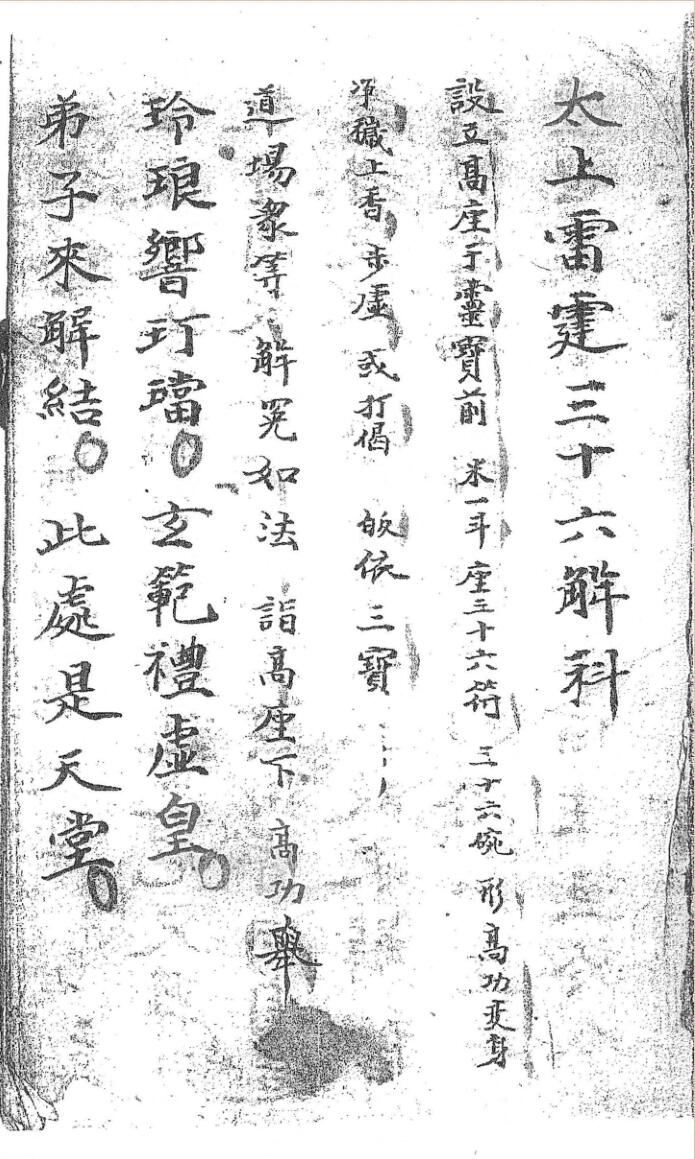 太上雷霆三十六解科
設立高座于靈寶前 米一斗 座三十六符 三十六碗 形高功变身
净穢上香步虛或打偈 皈依三寶
道場眾等 解冤如法 詣高座下 高功舉
玲琅響玎璫〇玄範禮虛皇〇
弟子來解結〇此處是天堂〇